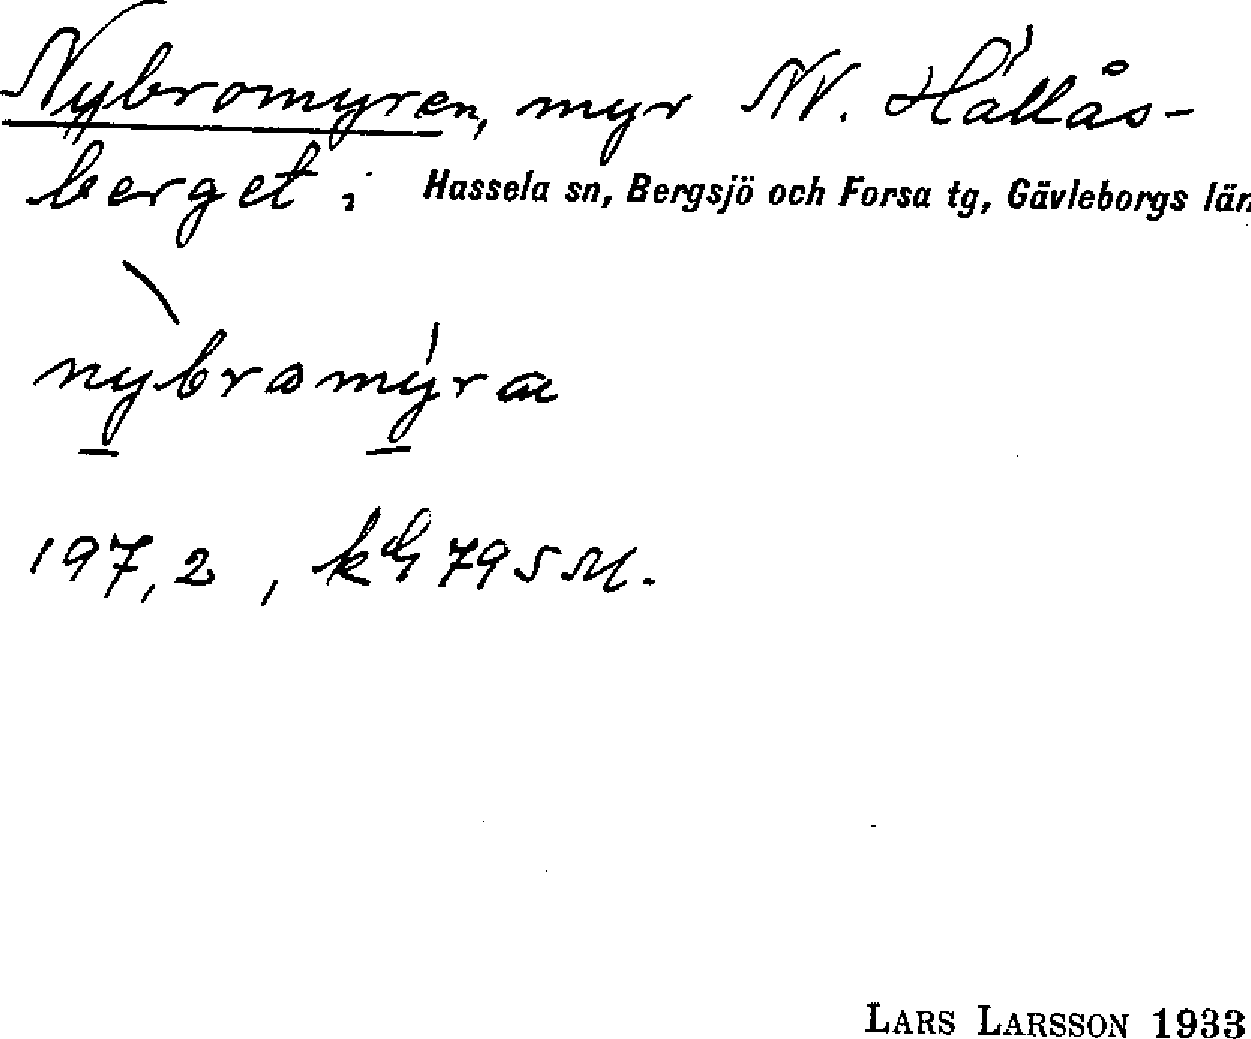 Nybromyren, myr NV. Hållås-
berget i Hassela sn, Bergsjö och Forsa tg, Gävleborgs län
nỳbramýra
197,2, 795 M.
LARS LARSSON 1933